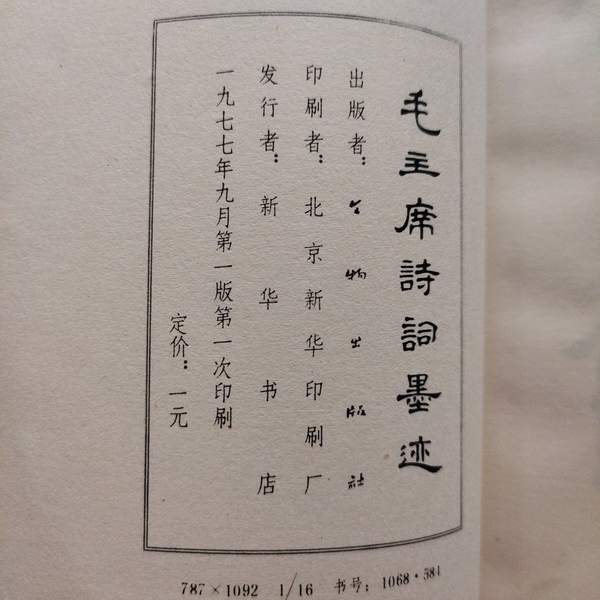 毛主席詩詞墨迹
出版者：文物出版社
印刷者：北京新华印刷厂
发行者：新华书店
一九七七年九月第一版第一次印刷
定价：一元
787×1092 1/16 书号：1068·584